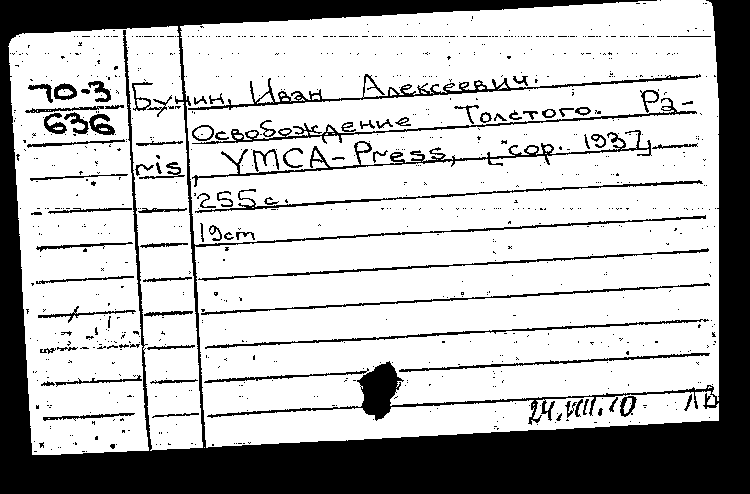 70-3 Бунин, Иван Алексеевич.
636 Освобождение Толстого. Pa-
ris, YMCA-Press, [cop. 1937].
255 с.
19cm
24.VIII.70 ЛВ